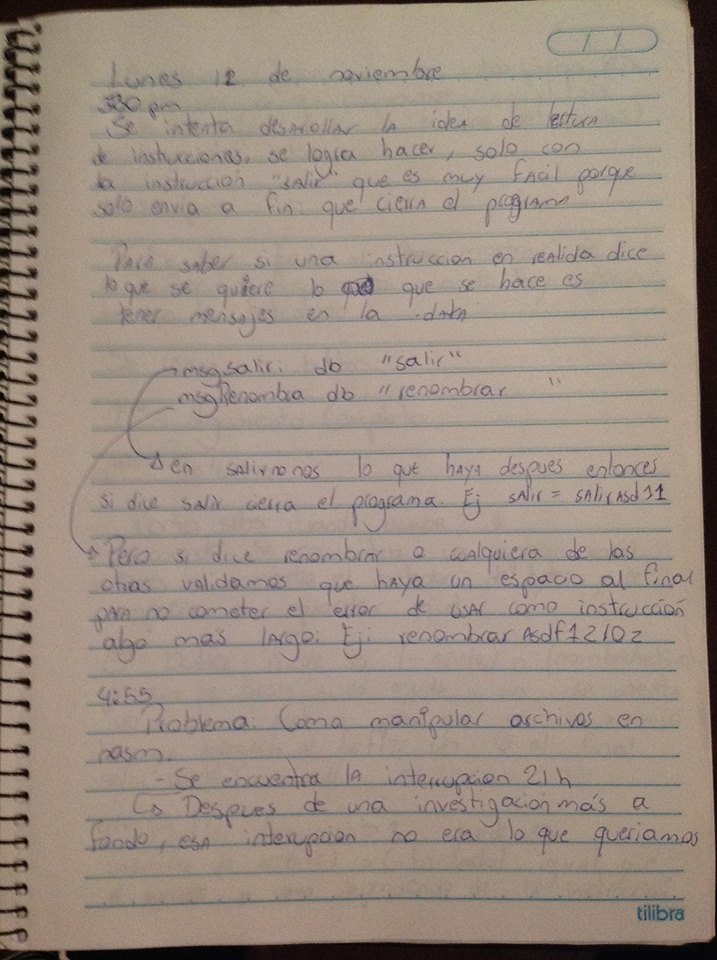 Lunes 12 de noviembre
330 pm
Se intenta desarollar la idea de lectura
de instrucciones, se logra hacer, solo con
la instrucción "salir" que es muy facil porque
solo envia a fin que cierra el programa
Para saber si una instruccion en realida dice
lo que se quiere lo que se hace es
tener mensajes en la .data
msgsalir: db "salir"
msgRenombra db "renombrar "
en salir no nos lo que haya despues entonces
si dice salir cierra el programa. Ej salir = salirAsd11
Pero si dice renombrar o cualquiera de las
otras validamos que haya un espacio al final
para no cometer el error de usar como instrucción
algo mas largo: Ej: renombrar Asdf1210z
4:55
Problema: Como manipular archivos en
nasm.
- Se encuentra la interrupcion 21h
Despues de una investigación más a
fondo, esa interupcion no era lo que queriamos
tilibra